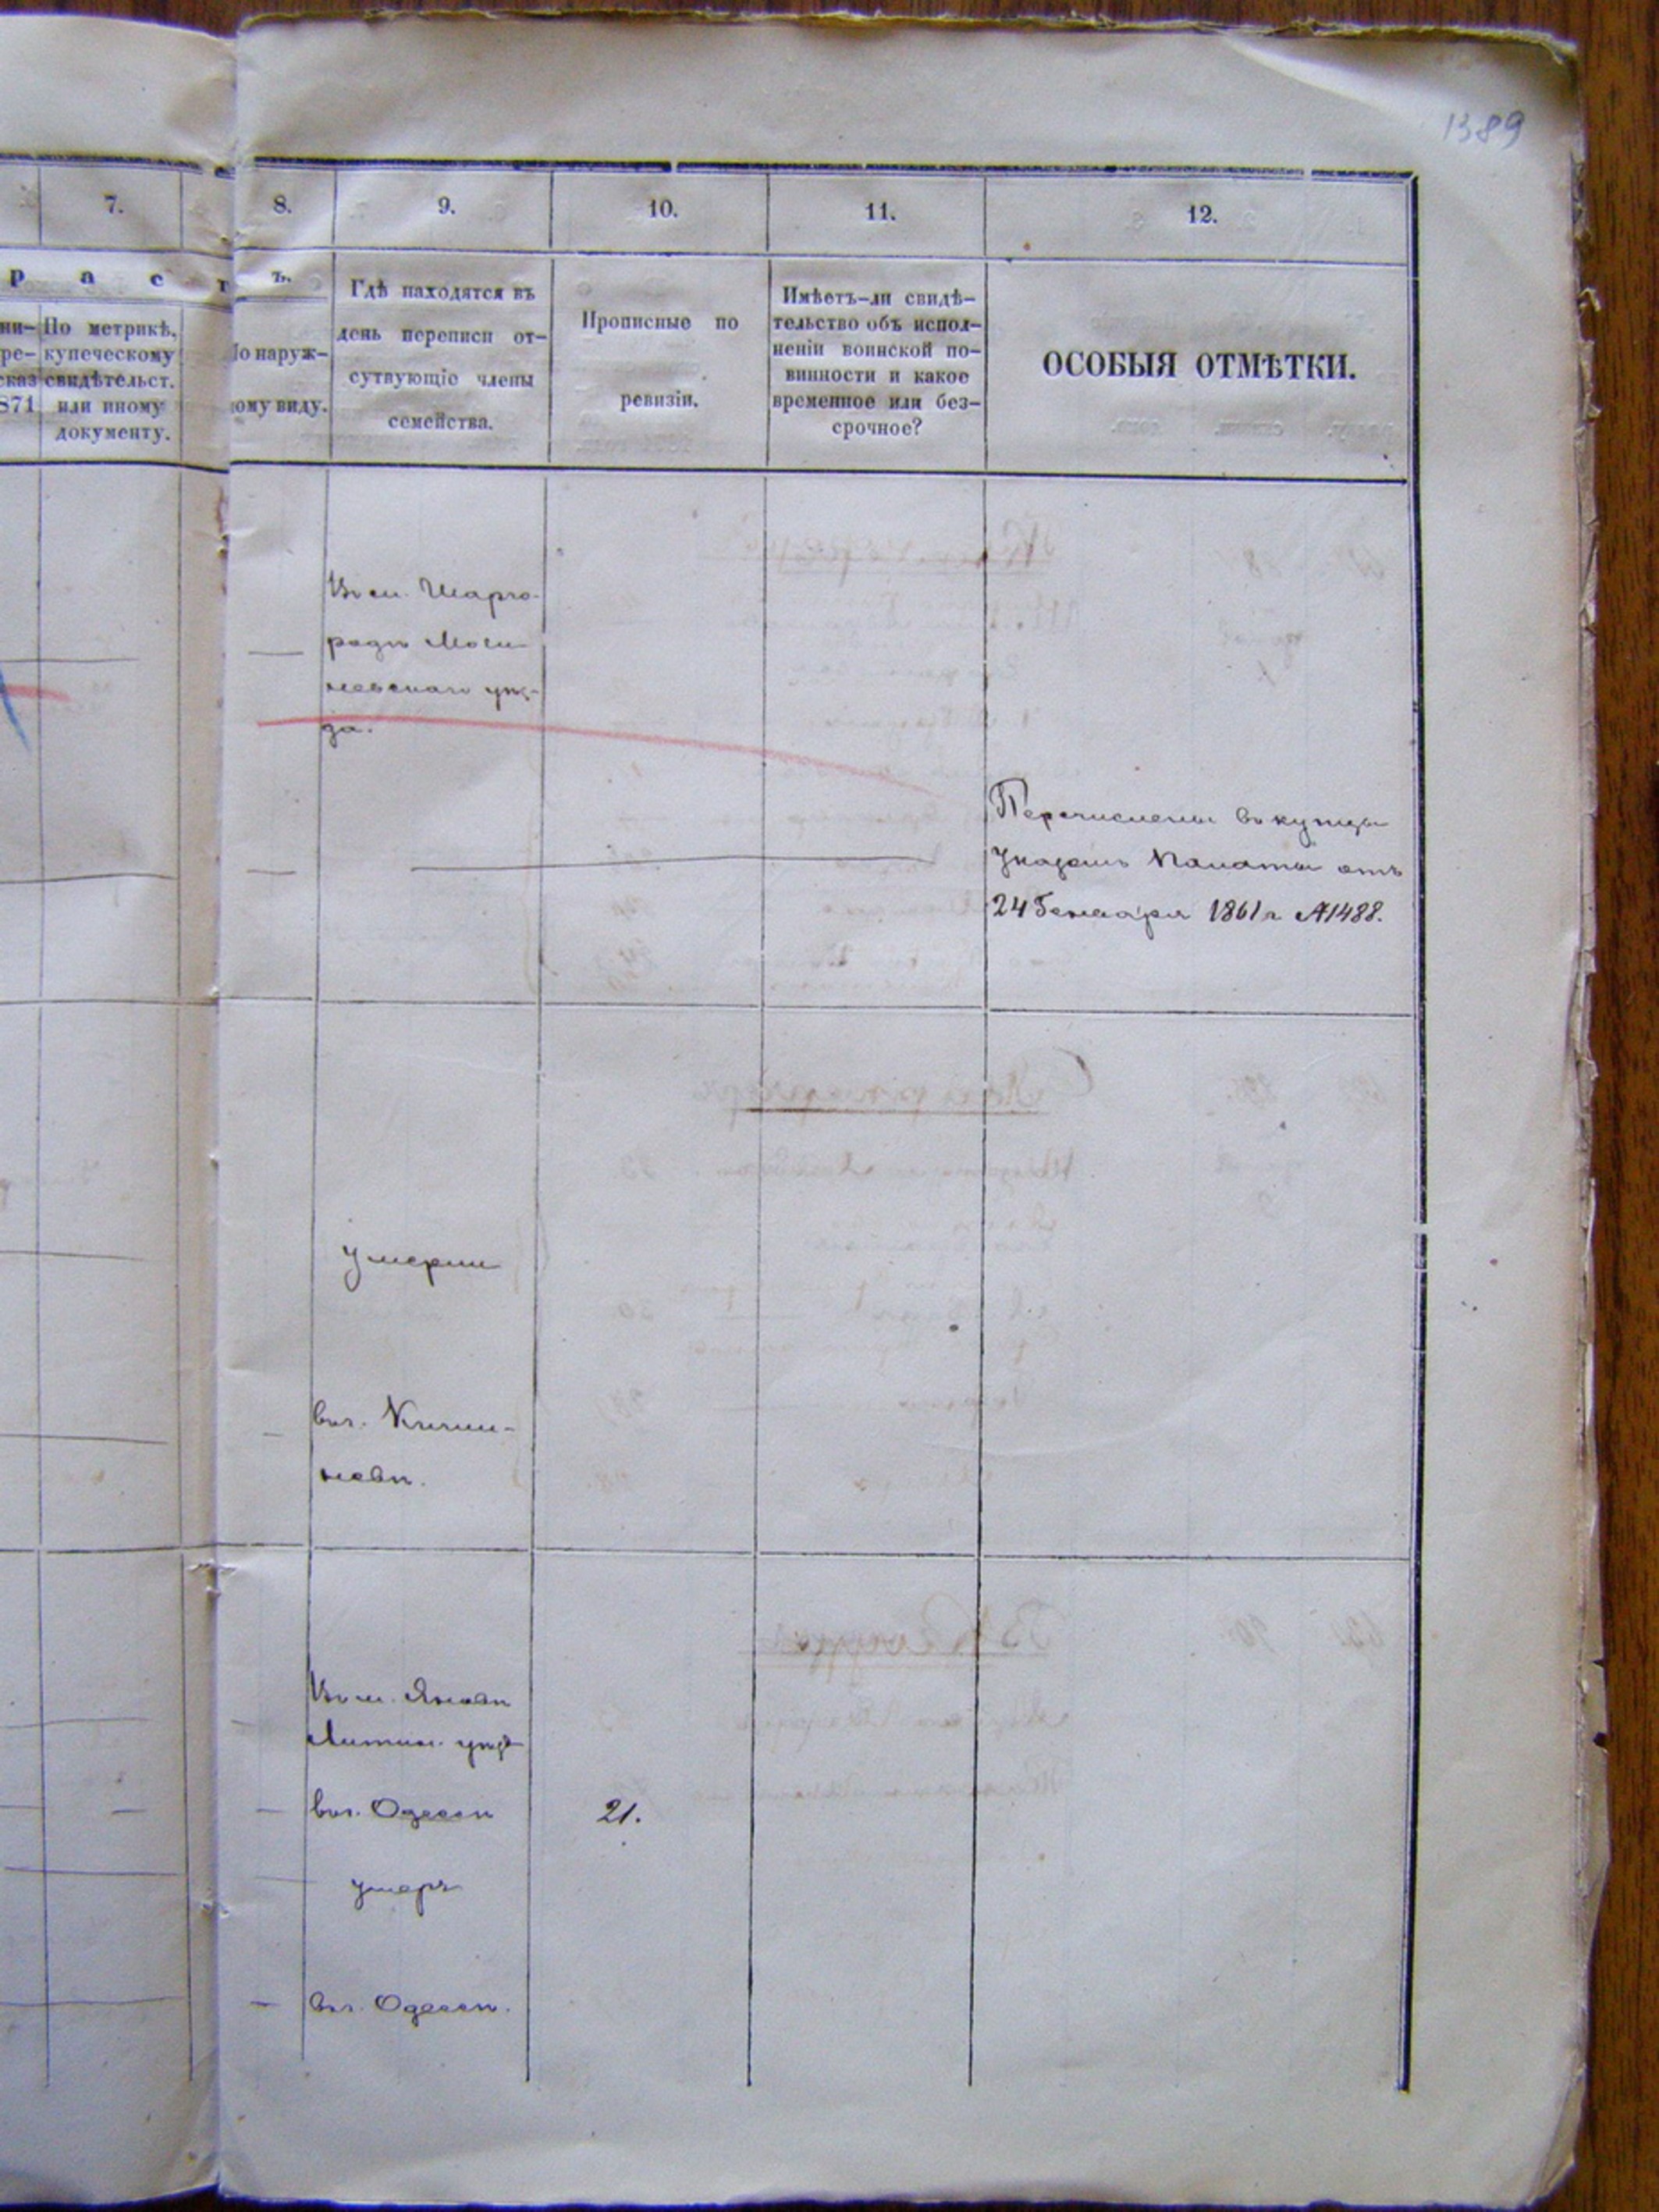 1389
7.
8.
9.
10.
11.
12.
р а с т
ъ.
По метрикѣ,
купеческому
свидѣтельст.
или иному
документу.
ни-
ре-
сказ
871
По наруж-
ному виду.
Гдѣ находятся въ
день переписи от-
сутвующіе члены
семейства.
Прописные по
ревизіи.
Имѣетъ-ли свидѣ-
тельство объ испол-
неніи воинской по-
винности и какое
временное или без-
срочное?
ОСОБЫЯ ОТМѢТКИ.
Въ м. Шарго-
родѣ Моги
левскаго уѣз-
да.
Перечислены въ купцы
Указомъ Палаты отъ
24 Генваря 1861 г №1488.
умерли
въ г. Кишин-
невѣ.
Въ м. Яновѣ
Литин. уѣзд
въ г. Одессѣ
21.
умеръ
въ г. Одессѣ.